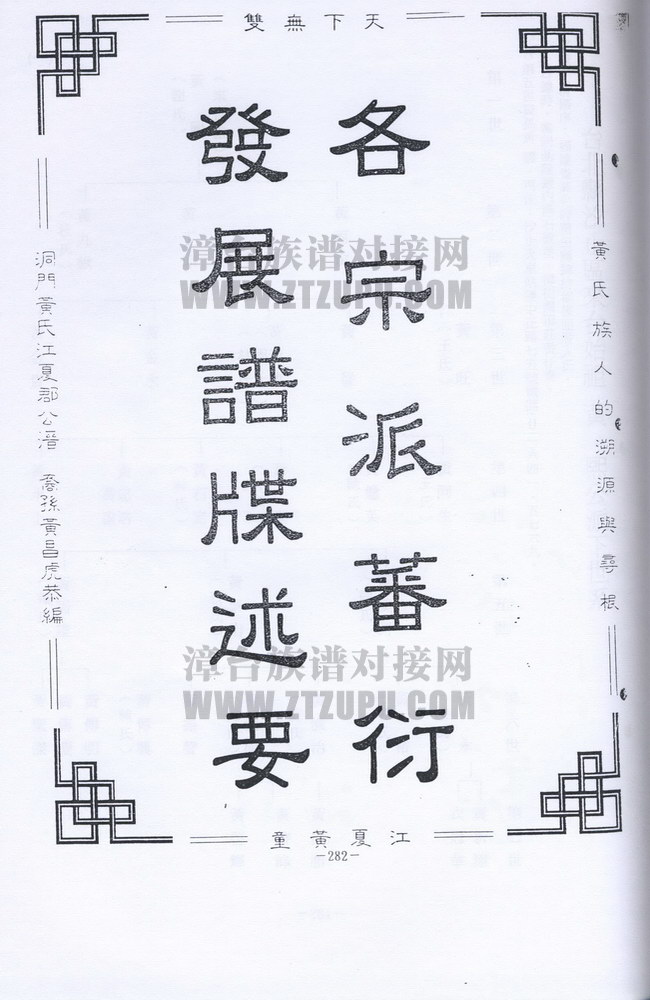 天下無雙
黃氏族人的溯源與尋根
各宗派蕃衍
發展譜牒述要
洞門黃氏江夏郡公潽 裔孫黃呂虎恭編
江夏黃童
-282-
漳台族谱对接网
WWW.ZTZUPU.COM
漳台族谱对接网
WWW.ZTZUPU.COM